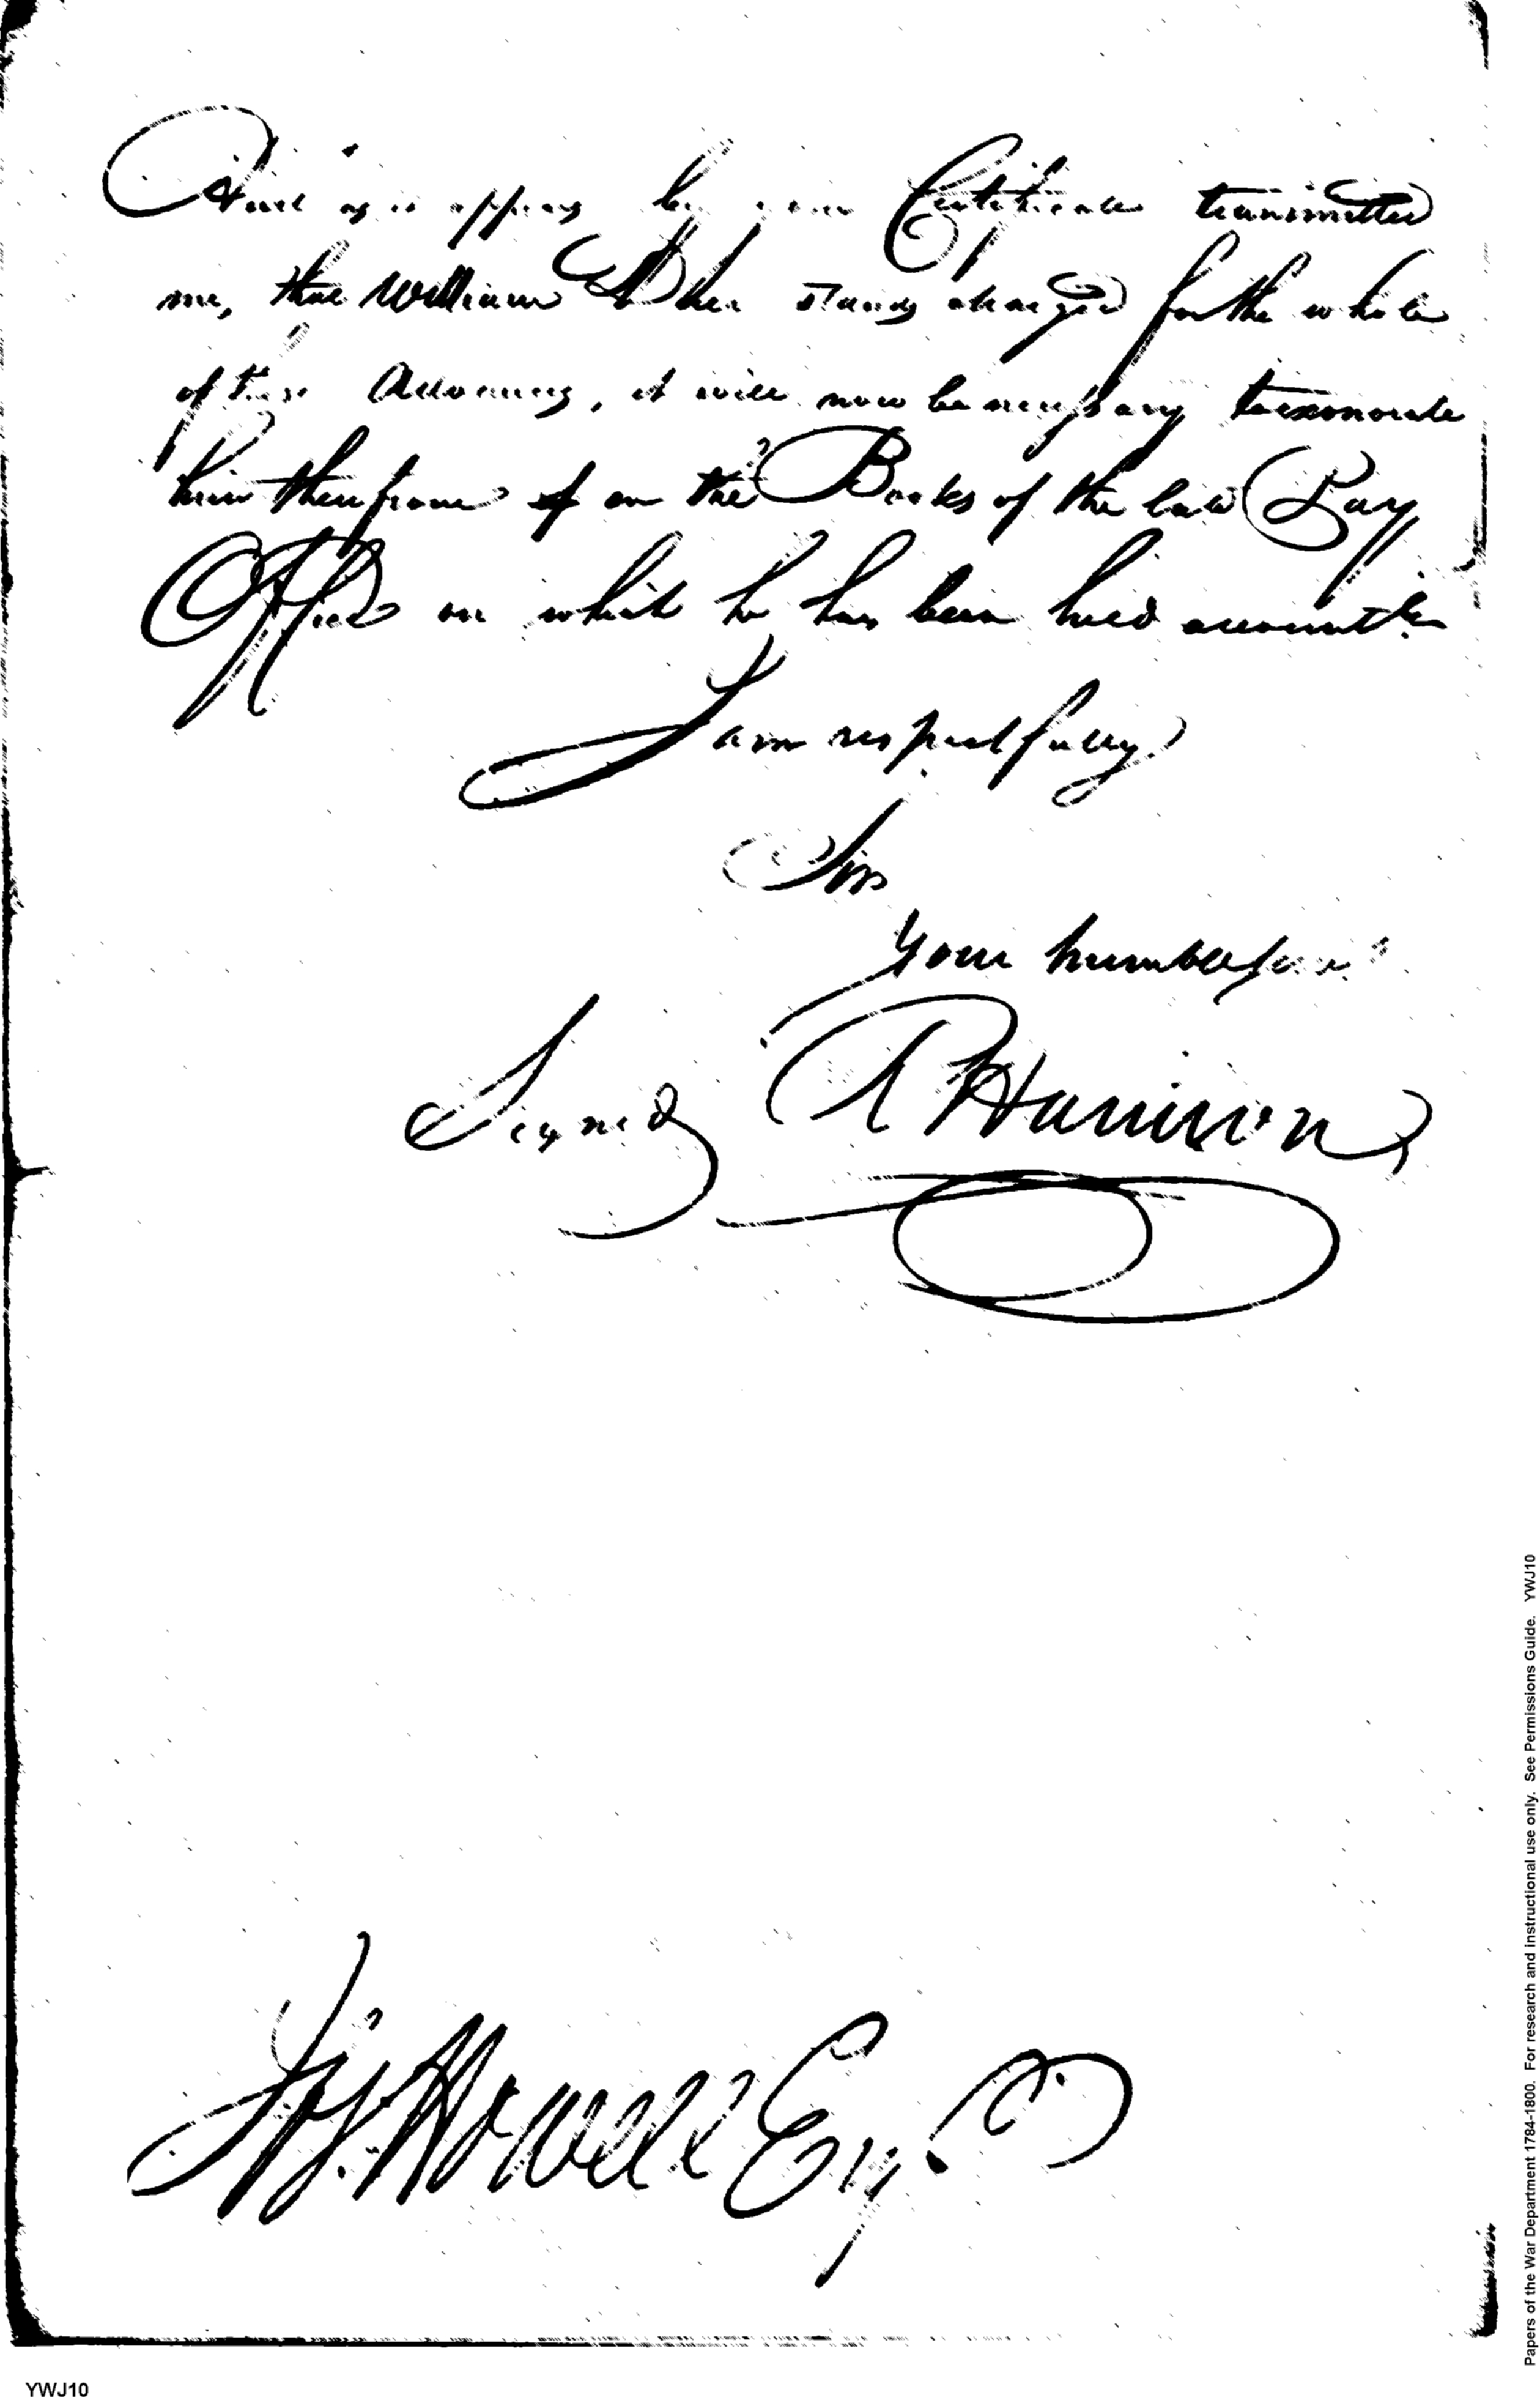 And as it appears by your Certificate transmitted
me, that William stands charged for the whole
of these Advances, it will now be necessary to exonorate
him therefrom on the Books of the late Pay
Office on which he has been held accountable
I am respectfully
Sir
Your humble serv.t
Signed R Harrison
Jos. Howell Esq.
Papers of the War Department 1784-1800. For research and instructional use only. See Permissions Guide. YWJ10
YWJ10